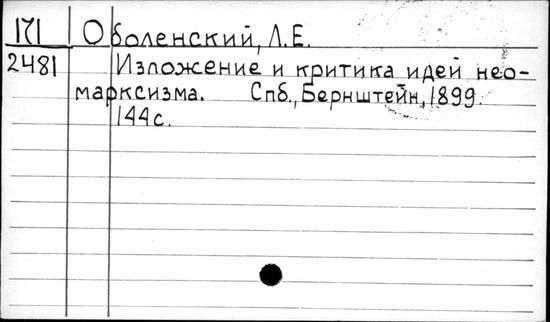 171 Оболенский, Л.Е.
2481 Изложение и критика идей нео-
марксизма. Спб., Бернштейн, 1899.
144с.